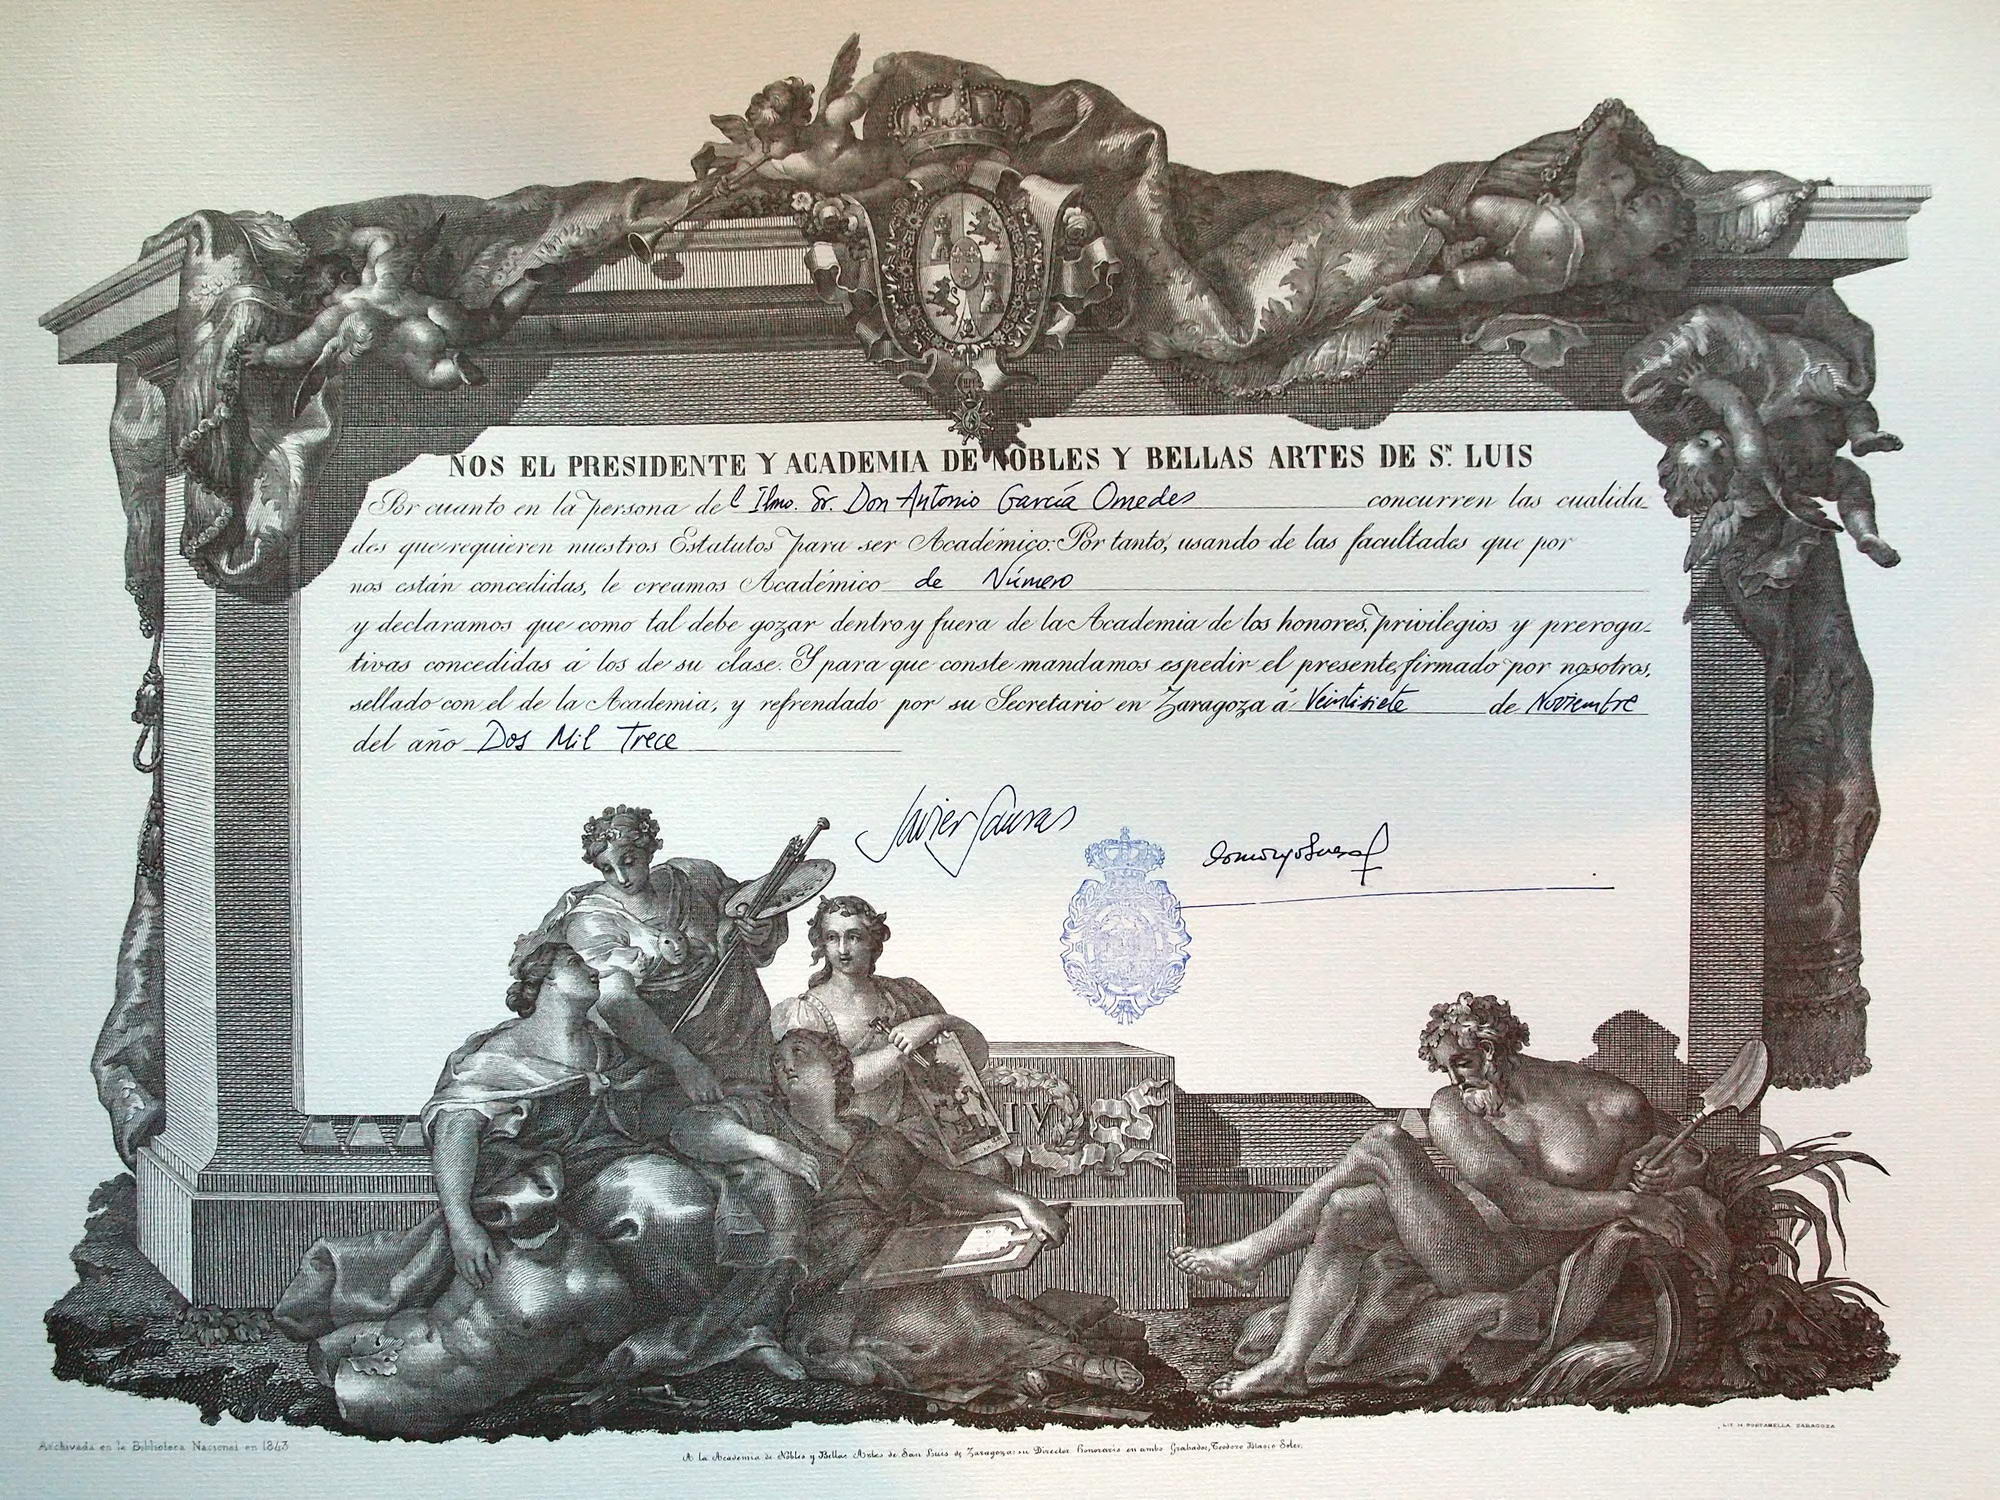 NOS EL PRESIDENTE Y ACADEMIA DE NOBLES Y BELLAS ARTES DE Sn. LUIS
Por cuanto en la persona del Ilmo. Sr. Don Antonio García Omedes concurren las cualida-
des que requieren nuestros Estatutos para ser Académico: Por tanto, usando de las facultades que por
nos están concedidas, le creamos Académico de Número
y declaramos que como tal debe gozar dentro y fuera de la Academia de los honores, privilegios y preroga-
tivas concedidas á los de su clase. Y para que conste mandamos espedir el presente, firmado por nosotros,
sellado con el de la Academia, y refrendado por su Secretario en Zaragoza á Veintisiete de Noviembre
del año Dos Mil Trece
Javier Sauras
IV
LIT. M. PORTABELLA ZARAGOZA
Archivada en la Biblioteca Nacional en 1843
A la Academia de Nobles y Bellas Artes de San Luis de Zaragoza: su Director honorario en ambo Grabados, Teodoro Blasco Soler.